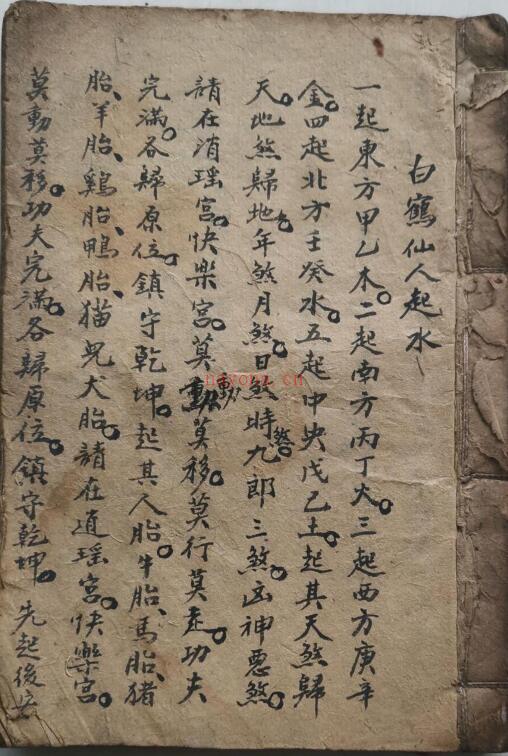 白鶴仙人起水
一起東方甲乙木。二起南方丙丁火。三起西方庚辛
金。四起北方壬癸水。五起中央戊己土。起其天煞歸
天。地煞歸地。年煞月煞。日煞時煞九郎三煞。凶神惡煞。
請在消瑶宮。快樂宮。莫動莫移。莫行莫走。功夫
完滿。各歸原位。鎮守乾坤。起其人胎。牛胎、馬胎、猪
胎、羊胎、鷄胎、鴨胎、猫兒犬胎。請在逍瑶宮。快樂宮。
莫動莫移。功夫完滿。各歸原位。鎮守乾坤。先起後安
nayona.cn